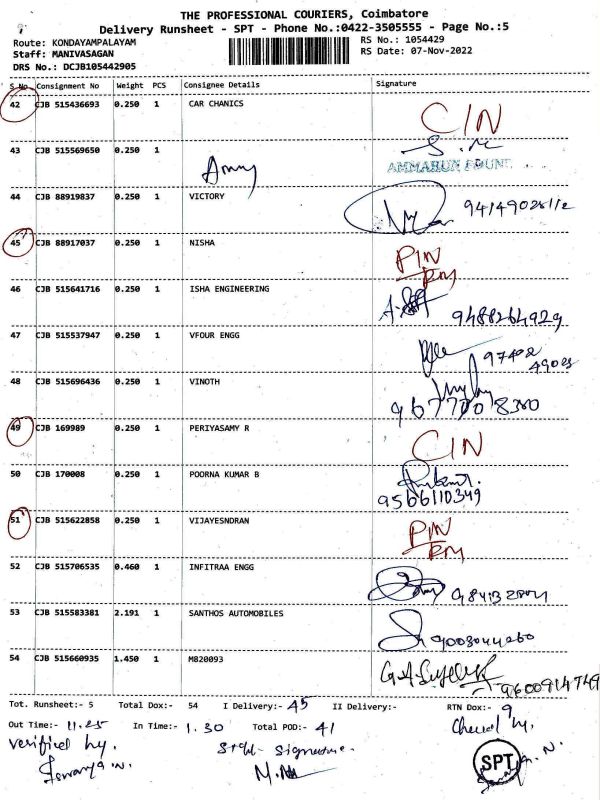 THE PROFESSIONAL COURIERS, Coimbatore
Delivery Runsheet - SPT - Phone No.:0422-3505555 - Page No.:5
Route: KONDAYAMPALAYAM
RS No.: 1054429
Staff: MANIVASAGAN
RS Date: 07-Nov-2022
DRS No.: DCJB105442905
S.No. Consignment No Weight PCS Consignee Details Signature
42 CJB 515436693 0.250 1 CAR CHANICS C/N
43 CJB 515569650 0.250 1
44 CJB 88919837 0.250 1 VICTORY
45 CJB 88917037 0.250 1 NISHA P/N
RM
46 CJB 515641716 0.250 1 ISHA ENGINEERING 9488264929
47 CJB 515537947 0.250 1 VFOUR ENGG 97402
49023
48 CJB 515696436 0.250 1 VINOTH
49 CJB 169989 0.250 1 PERIYASAMY R C/N
50 CJB 170008 0.250 1 POORNA KUMAR B
9566110349
51 CJB 515622858 0.250 1 VIJAYESNDRAN P/N
RM
52 CJB 515706535 0.460 1 INFITRAA ENGG
53 CJB 515583381 2.191 1 SANTHOS AUTOMOBILES 9003044260
54 CJB 515660935 1.450 1 M820093 9600914749
Tot. Runsheet:- 5 Total Dox:- 54 I Delivery:- 45 II Delivery:- RTN Dox:- 9
Out Time:- 11.25 In Time:- 1.30 Total POD:- 41
verified by.
signature.
SPT